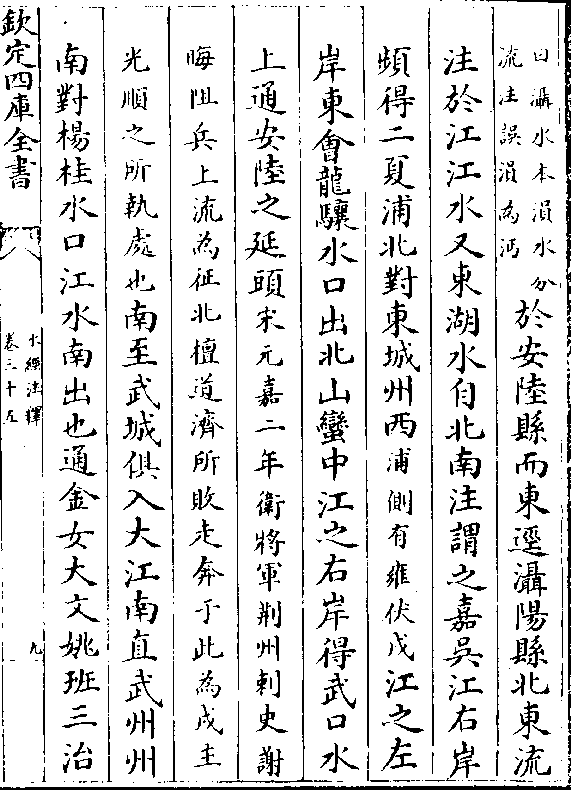 曰灄水本溳水分
流注誤溳為沔
於安陸縣而東逕灄陽縣北東流
注於江江水又東湖水自北南注謂之嘉吳江右岸
頻得二夏浦北對東城州西浦側有雍伏戍江之左
岸東會龍驤水口出北山蠻中江之右岸得武口水
上通安陸之延頭宋元嘉二年衛將軍荆州刺史謝
晦阻兵上流為征北檀道濟所敗走奔于此為戍主
光順之所執處也南至武城俱入大江南直武州州
南對楊桂水口江水南出也通金女大文姚班三治
欽定四庫全書
水經注釋
卷三十五
九